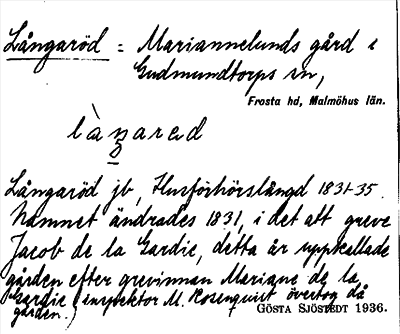 Långaröd = Mariannelunds gård i
Gudmundtorps sn,
Frosta hd, Malmöhus län.
làŋared
Långaröd jb, Husförhörslängd 1831-35.
Namnet ändrades 1831, i det att greve
Jacob de la Gardie, detta år uppkallade
gården efter grevinnan Mariane de la
Gardie (inspektor M. Rosenquist övertog då
gården.)
GÖSTA SJÖSTEDT 1936.